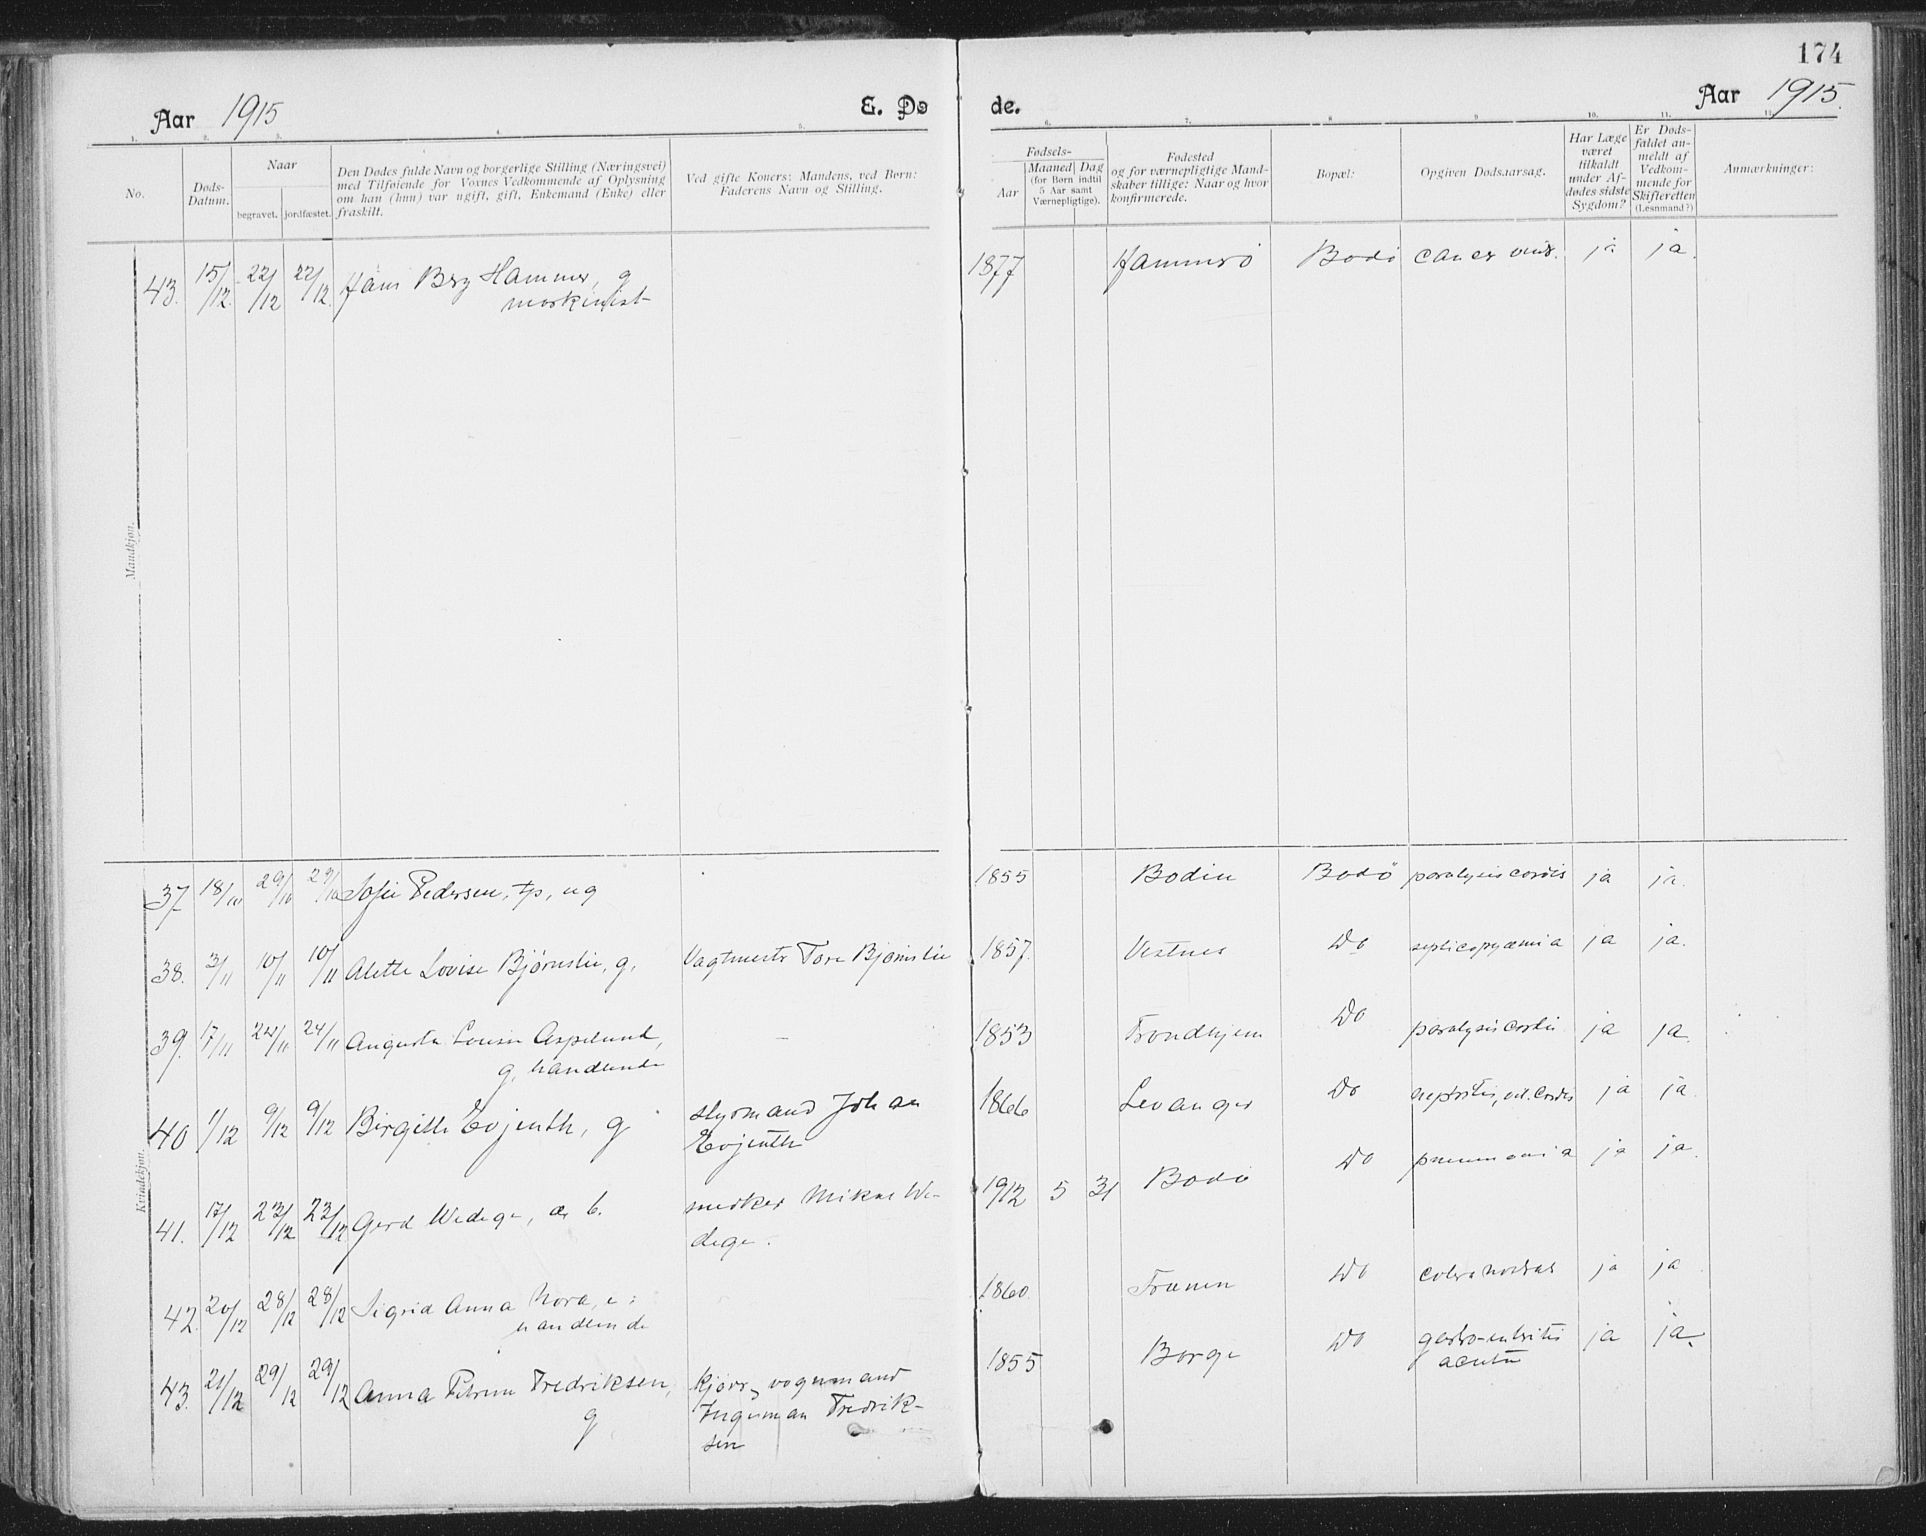 174
Aar 1915
E. Dø
de.
Aar 1915.
1. 2. 3. 4. 5. 6. 7. 8. 9. 10. 11.
No.
Døds-
Datum.
Naar
begravet. jordfæstet.
Den Dødes fulde Navn og borgerlige Stilling (Næringsvei)
med Tilføiende for Voxnes Vedkommende af Oplysning
om han (hun) var ugift, gift, Enkemand (Enke) eller
fraskilt.
Ved gifte Koner: Mandens, ved Børn:
Faderens Navn og Stilling.
Fødsels-
Aar
Maaned Dag
(for Børn indtil
5 Aar samt
Værnepligtige).
Fødested
og for værnepligtige Mand-
skaber tillige: Naar og hvor
konfirmerede.
Bopæl:
Opgiven Dødsaarsag.
Har Læge
været
tilkaldt
under Af-
dødes sidste
Sygdom?
Er Døds-
faldet an-
meldt af
Vedkom-
mende for
Skifteretten
(Lensmand?)
Anmærkninger:
Mandkjøn.
43. 15/12. 22/12 22/12. Hans Berg Hammer, g 1877 Hammerö Bodö ja ja
maskinist
Kvindekjøn.
37 18/10 29/10 29/10 Sofie Pedersen, tp, ug 1855 Bodin Bodö paralysis cordis ja ja.
38. 3/11 10/11 10/11 Alette Lovise Bjørnslie, g, Vagtmestr Tore Bjørnslie 1857. Vestnes Do septicopyæmia ja ja.
39. 17/11 24/11 24/11 Augusta Louise Aspelund, — 1853 Trondhjem Do paralysis cordis ja ja.
g, handlende
40 1/12 9/12 9/12 Birgitte Evjenth, g styrmand Johan 1866 Levanger Do nephritis, vit. cordis ja ja.
Evjenth
41. 17/12 23/12 23/12 Gerd Wedege, æ b. snedker Mikal We- 1912 5 31 Bodö Do pneumonia ja ja.
dege.
42. 20/12 28/12 28/12 Sigrid Anna Nora, e: 1860. Do ja ja
handlende
43. 21/12 29/12 29/12 Anna Petrine Fredriksen, kjørr, vognmand 1855 Borge Do gastro-enteritis ja ja
g Ingeman Fredrik- acuta
sen